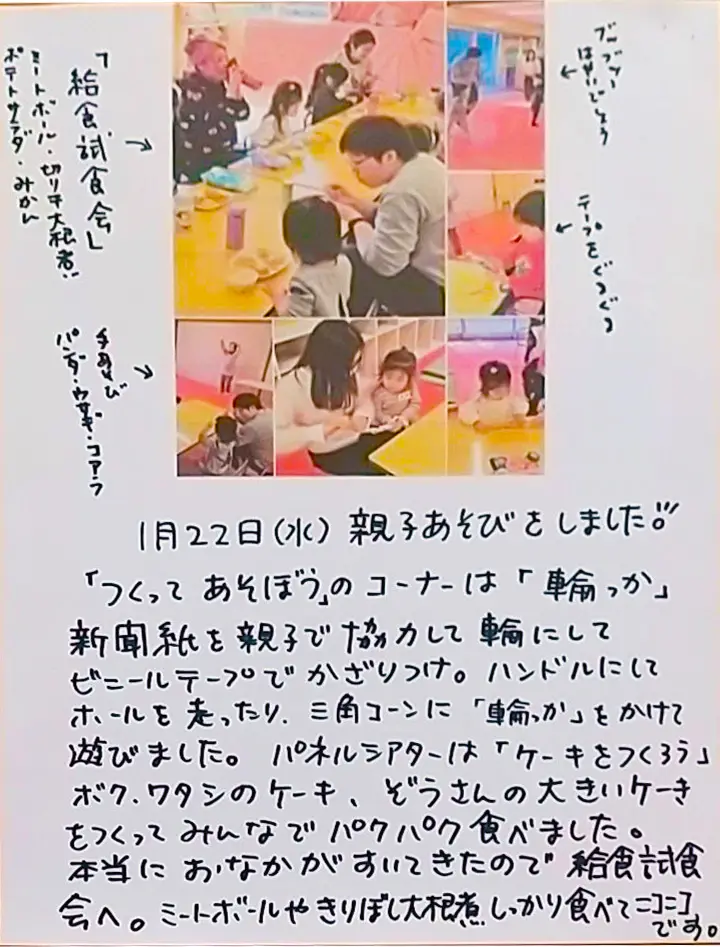 「給食試食会」
ミートボール・切り干大根煮
ポテトサラダ・みかん
ブッブブー
はせいでしょう
テープをぐるぐる
手あそび
パンダ・ウサギ・コアラ
1月22日(水) 親子あそびをしました!!
「つくって あそぼう」の コーナーは「輪っか」
新聞紙を親子で協力して輪にして
ビニールテープで かざりつけ。ハンドルにして
ホールを走ったり、三角コーンに「輪っか」をかけて
遊びました。パネルシアターは「ケーキをつくろう」
ボク、ワタシのケーキ、ぞうさんの大きいケーキ
をつくって みんなで パクパク食べました。
本当に おなかがすいてきたので 給食試食
会へ。ミートボールや きりぼし大根煮 しっかり食べて ニコニコ
です。